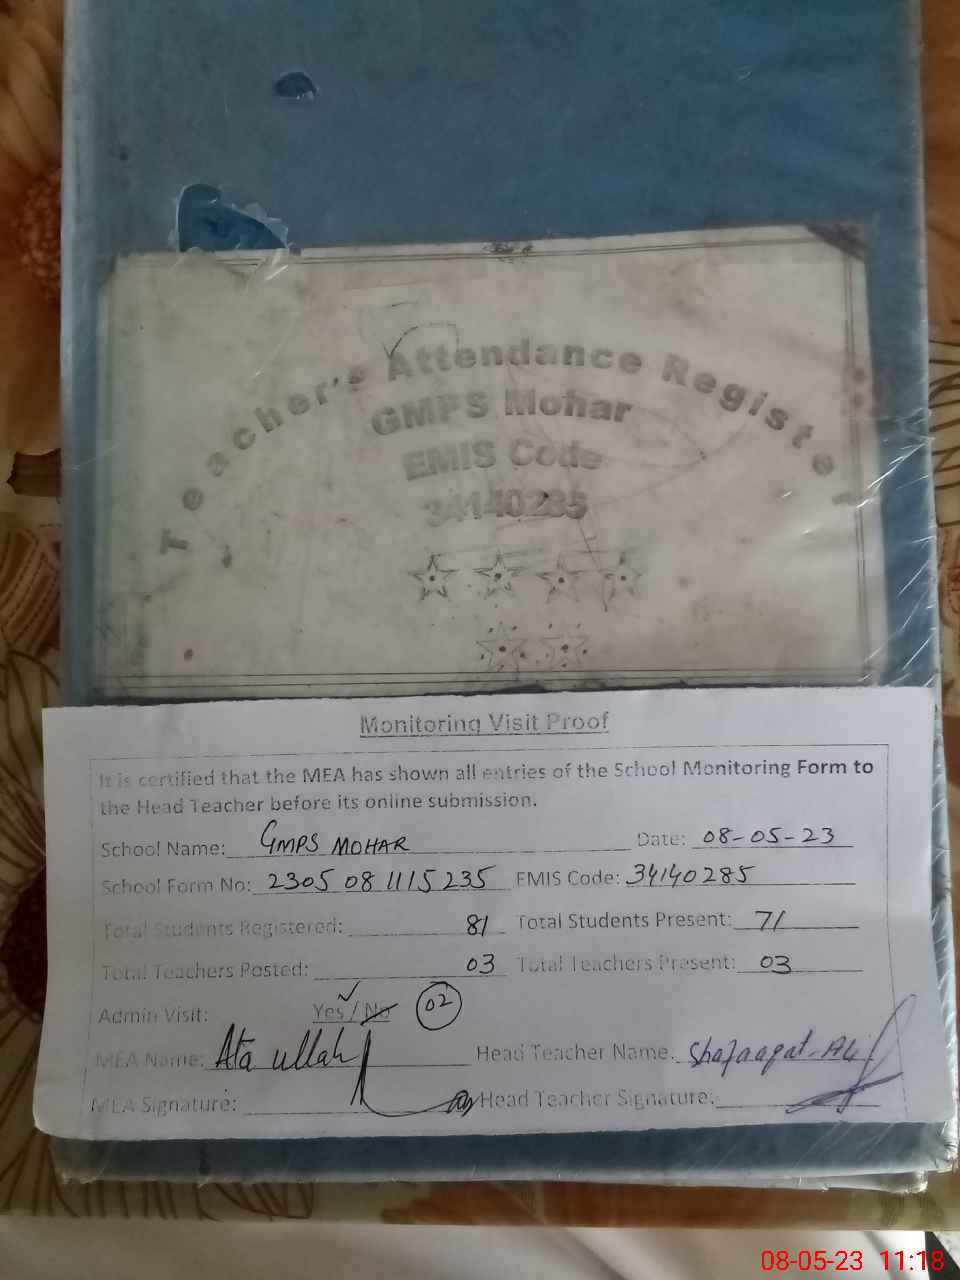 Teacher's Attendance Register
GMPS Mohar
EMIS Code
34140285
Monitoring Visit Proof
It is certified that the MEA has shown all entries of the School Monitoring Form to
the Head Teacher before its online submission.
School Name: GMPS MOHAR Date: 08-05-23
School Form No: 2305 08 1115 235 EMIS Code: 34140285
Total Students Registered: 81 Total Students Present: 71
Total Teachers Posted: 03 Total Teachers Present: 03
Admin Visit: Yes / No 02
MEA Name: Ata ullah Head Teacher Name: Shafaaqat-Ali
MEA Signature: Head Teacher Signature:
08-05-23 11:18